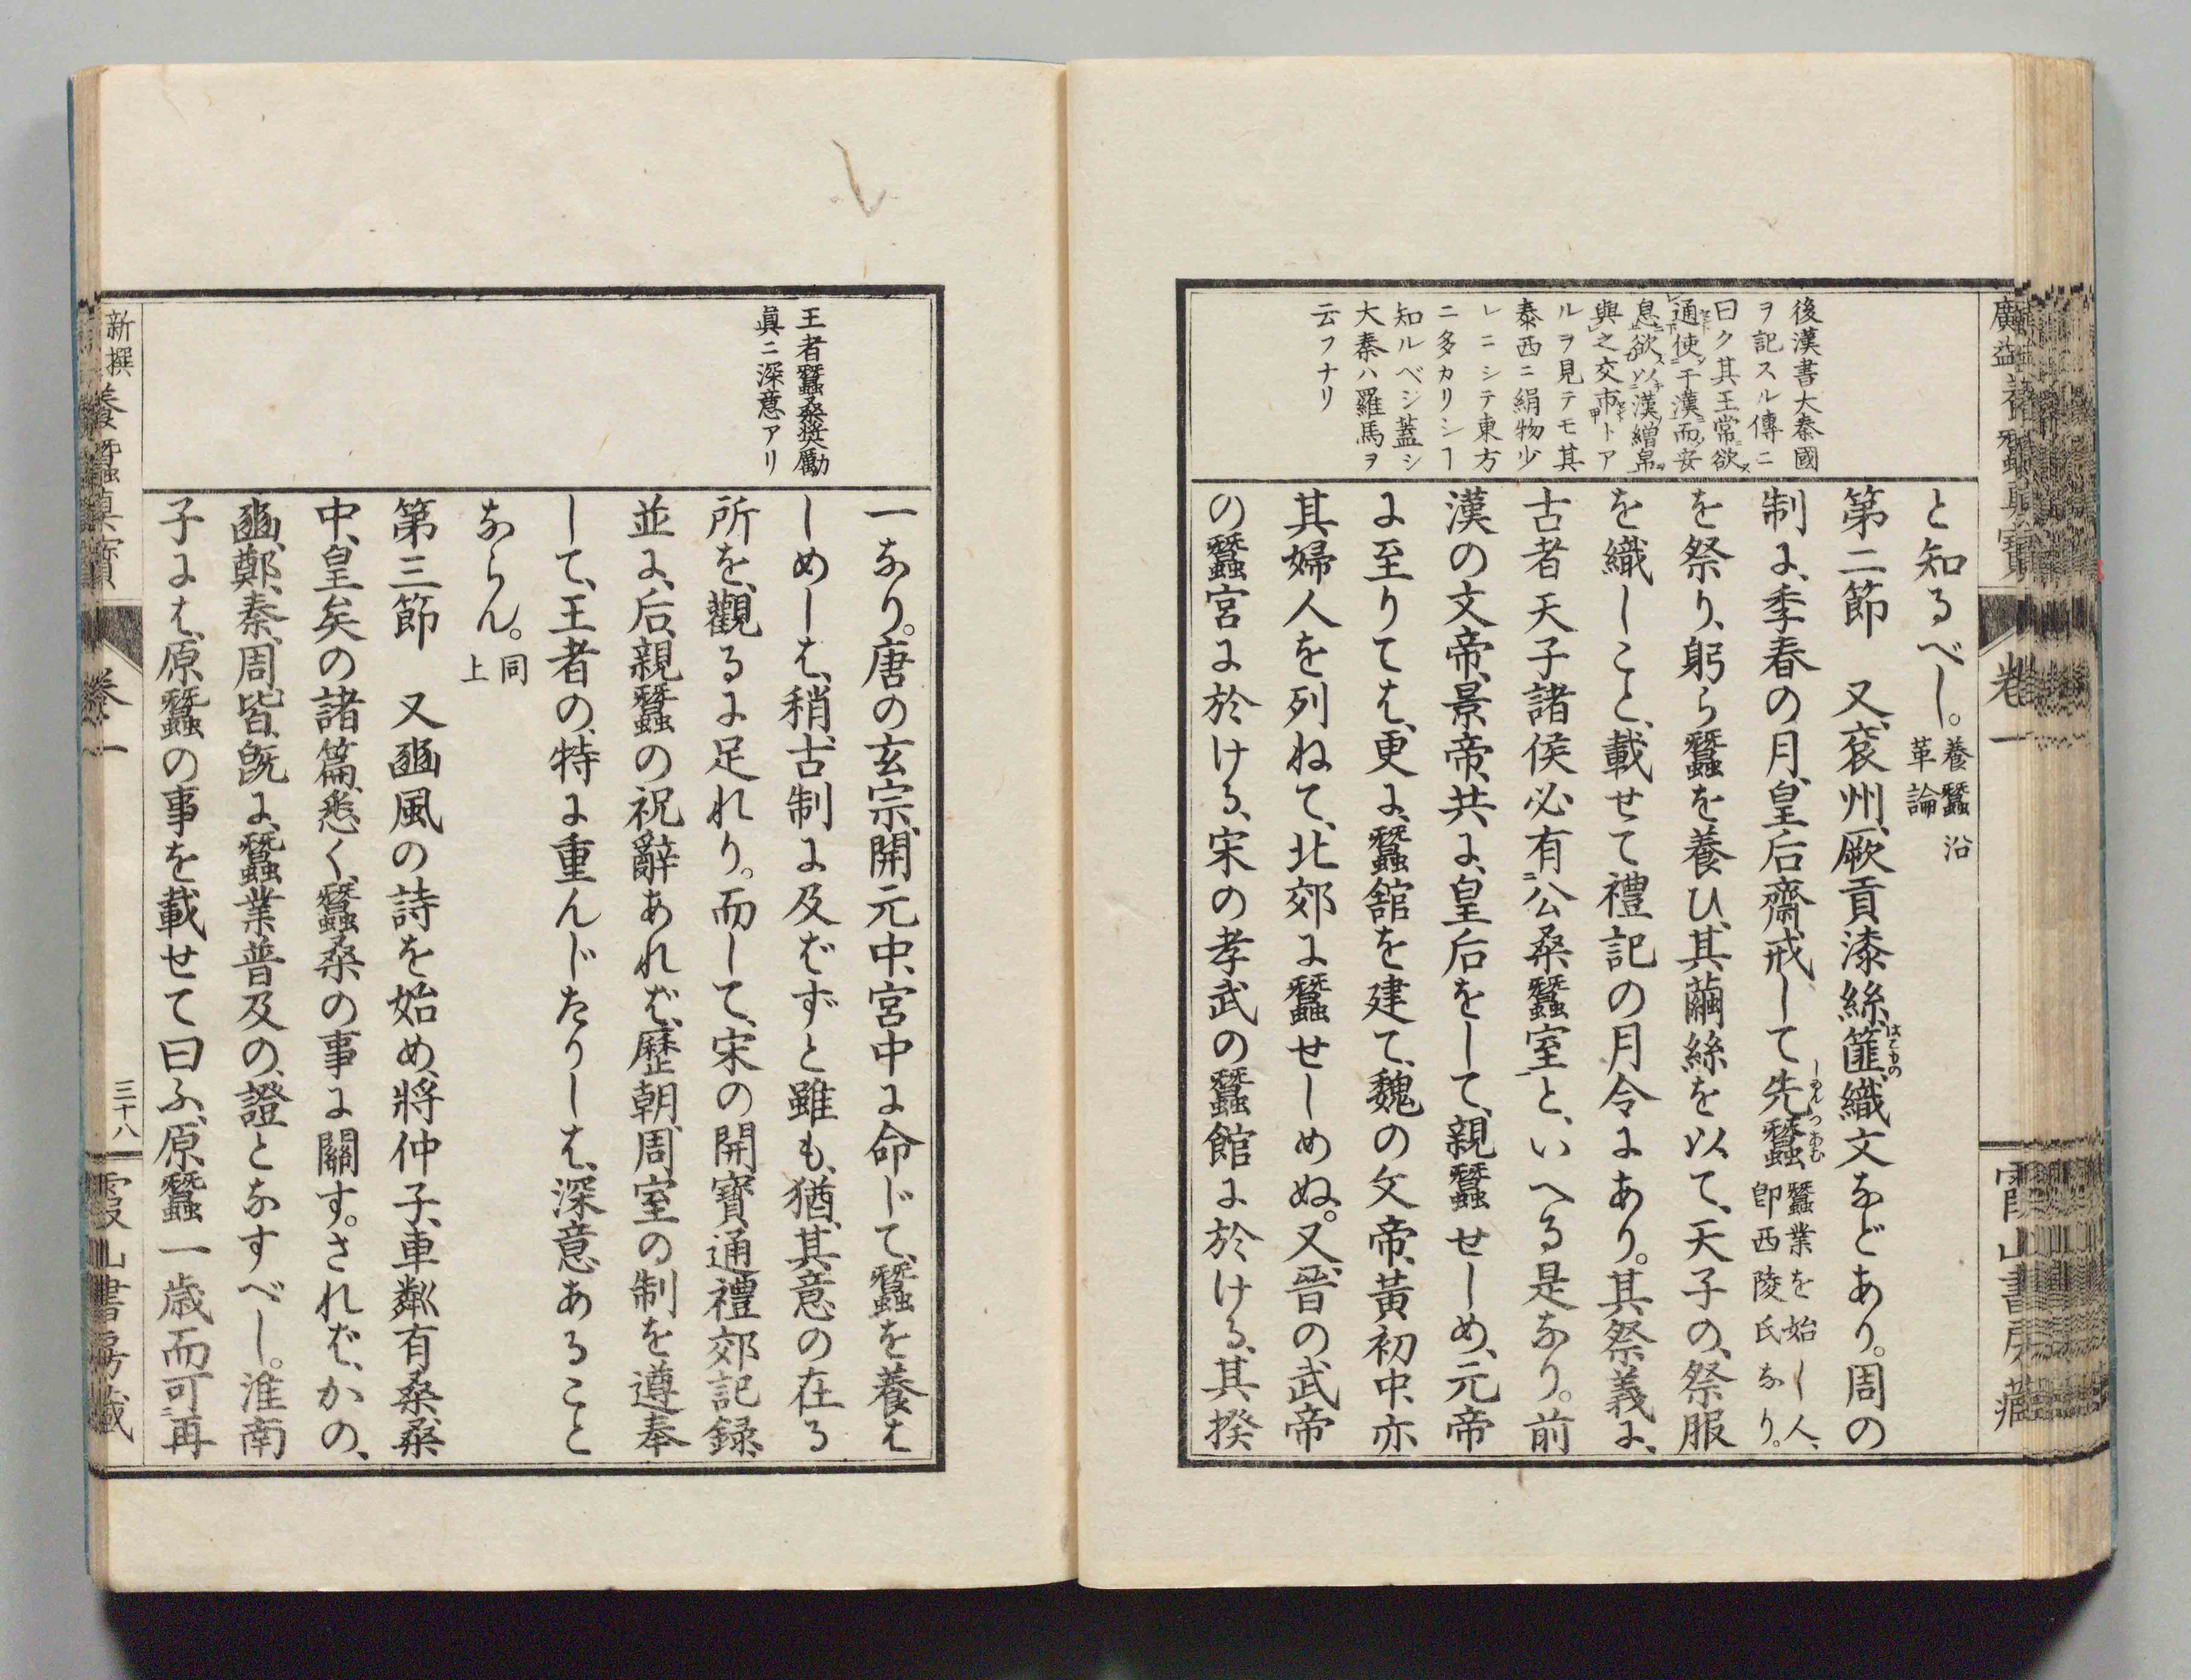 後漢書大秦國
ヲ記スル傳ニ
曰ク其王常欲ス
通使于漢而安
息欲以漢繒帛
與之交市トア
ルヲ見テモ其
泰西ニ絹物少
レニシテ東方
ニ多カリシヿ
知ルベシ蓋シ
大秦ハ羅馬ヲ
云フナリ
と知るべし。養蠶沿革論
第二節　又、兗州、厥貢漆絲、篚織文などあり。周の
制に、季春の月、皇后齋戒して先蠶蠶業を始し人、卽西陵氏なり。
を祭り、躬ら蠶を養ひ、其繭絲を以て、天子の、祭服
を織しこと、載せて禮記の月令にあり。其祭義に、
古者天子諸侯必有公桑蠶室と、いへる是なり。前
漢の文帝、景帝、共に、皇后をして、親蠶せしめ、元帝
に至りては、更に、蠶舘を建て、魏の文帝、黃初中、亦
其婦人を列ねて、北郊に蠶せしめぬ。又、晉の武帝
の蠶宮に於ける、宋の孝武の蠶館に於ける、其揆
卷一
王者蠶桑奬勵
眞ニ深意アリ
一なり。唐の玄宗、開元中、宮中に命じて、蠶を養は
しめしは、稍、古制に及ばずと雖も、猶、其意の在る
所を、觀るに足れり。而して、宋の開寶通禮、郊記録、
並に、后親蠶の祝辭あれば、歷朝、周室の制を遵奉
して、王者の、特に重んじたりしは、深意あること
ならん。同上
第三節　又豳風の詩を始め、將仲子、車鄰、有桑桑
中、皇矣の諸篇、悉く、蠶桑の事に關す。されば、かの、
豳、鄭、秦、周、皆、旣に、蠶業普及の、證となすべし。淮南
子には、原蠶の事を載せて曰ふ、原蠶一歳而可再
新撰養蠶眞寶
卷一
三十八
霞山書房藏